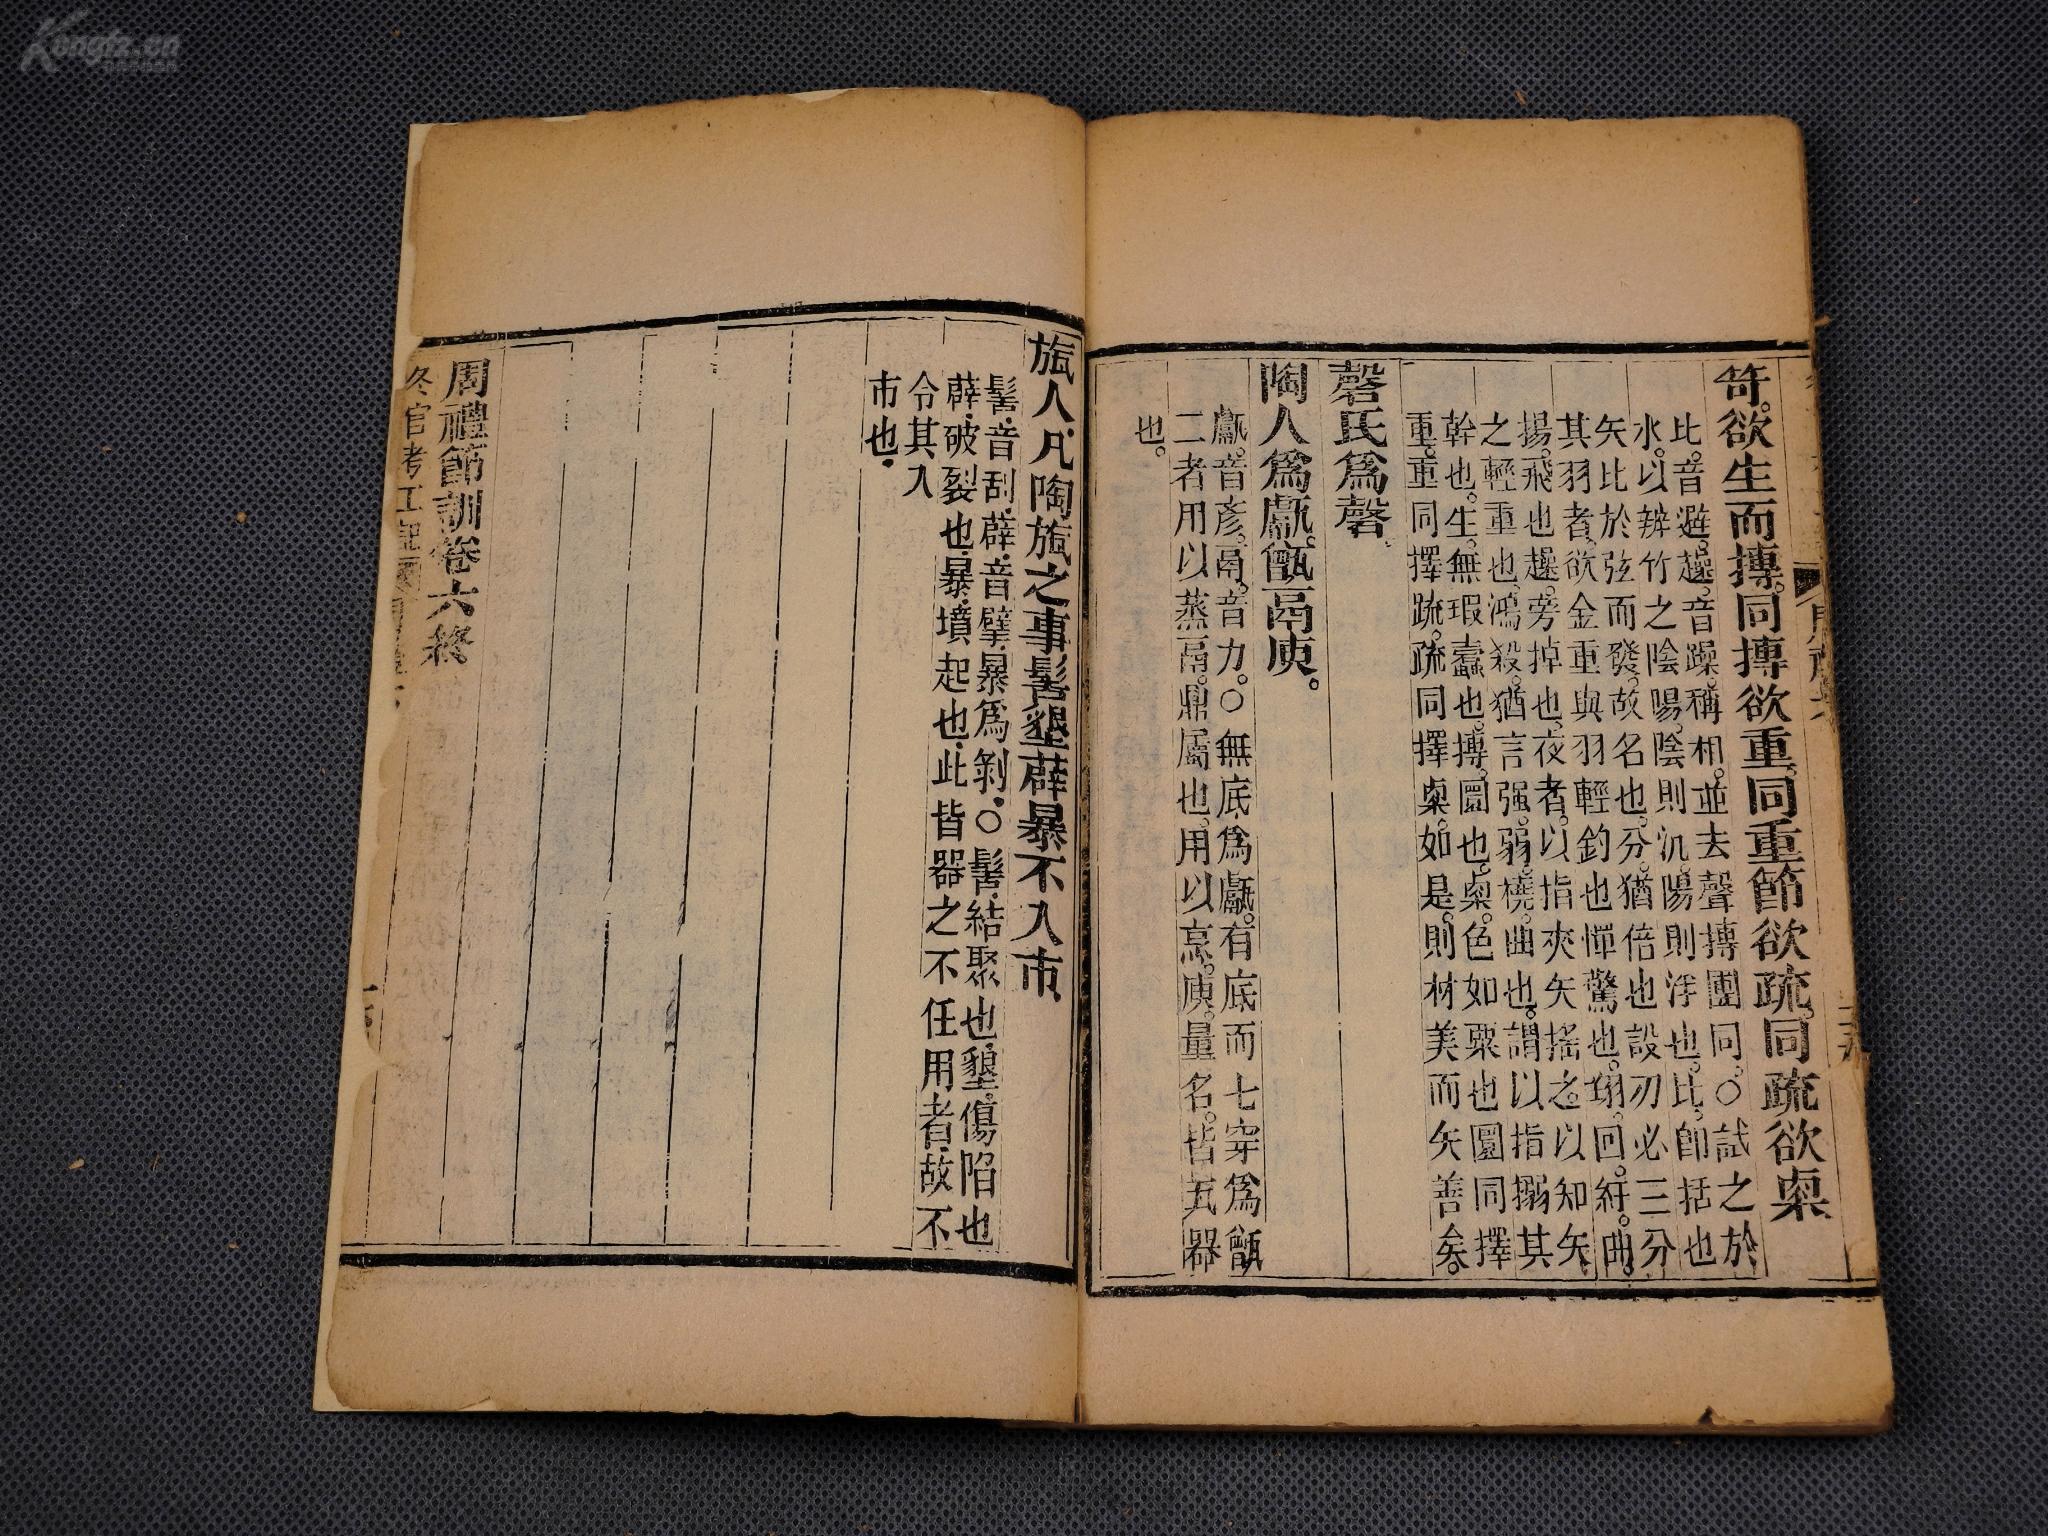 笴欲生而摶同摶欲重同重節欲疏同疏欲㮚
比音避趮音躁稱相並去聲摶團同○試之於
水以辨竹之陰陽陰則沉陽則浮也比卽括也
矢比於弦而發故名也分猶倍也設刃必三分
其羽者欲金重與羽輕鈞也憚驚也翔回紆曲
揚飛也趮旁掉也夜者以指夾矢搖之以知矢
之輕重也鴻殺猶言强弱橈曲也謂以指搦其
幹也生無瑕蠹也摶圜也㮚色如栗也圜同擇
重重同擇疏疏同擇㮚如是則材美而矢善矣
磬氏爲磬
陶人爲甗甑鬲庾
甗音彦鬲音力○無底爲甗有底而七穿爲甑
二者用以蒸鬲鼎屬也用以烹庾量名皆瓦器
也
旊人凡陶旊之事髺墾薜暴不入市
髺音刮薜音擘暴爲剝○髺結聚也墾傷陷也
薜破裂也暴墳起也此皆器之不任用者故不
令其入
市也
周禮節訓卷六終
冬官考工記
Kongfz.cn